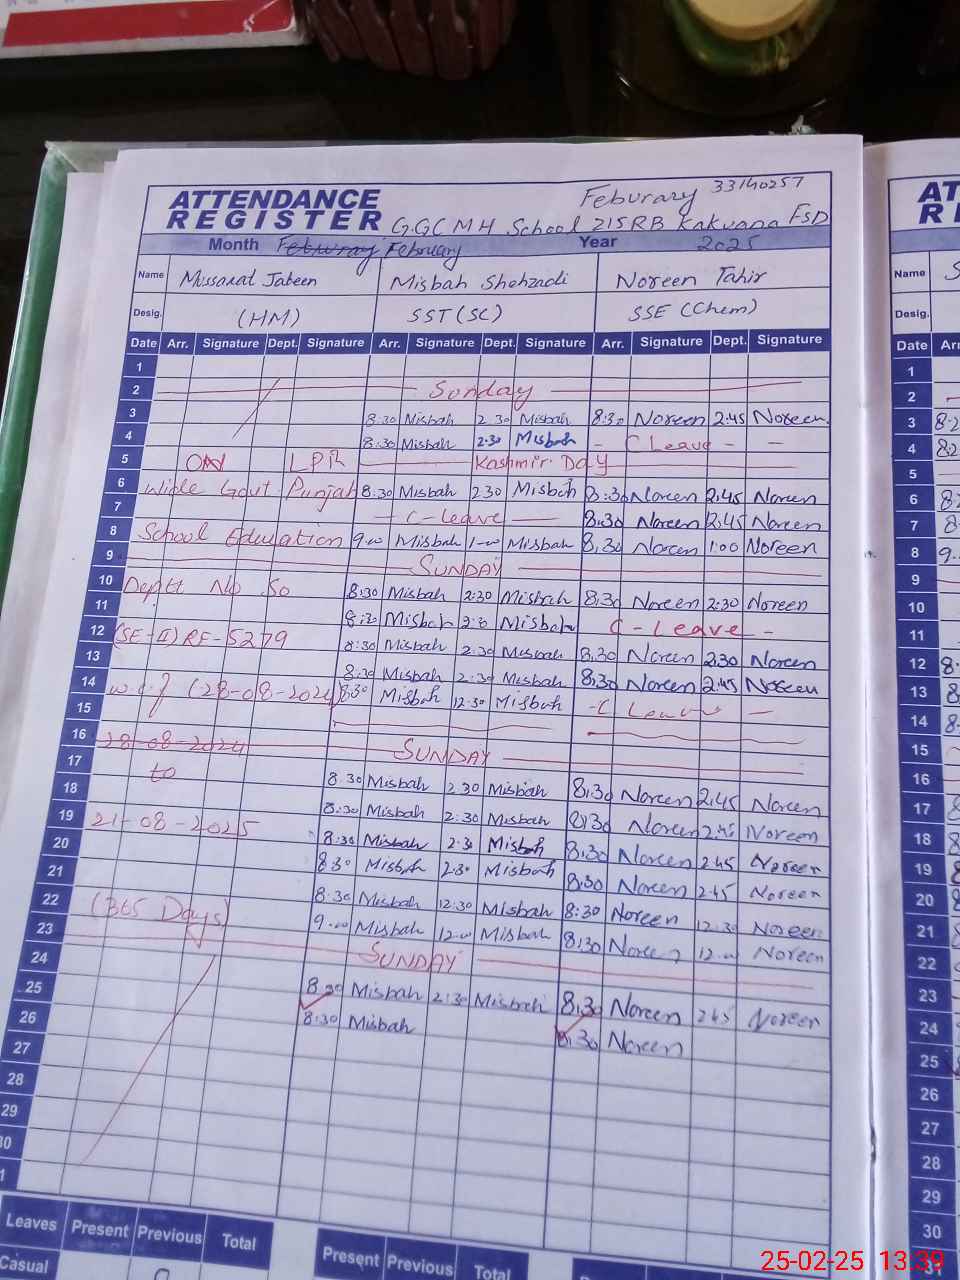 ATTENDANCE
REGISTER
Feburary 33140257
G.G.C M H School 215 RB Kakuana FSD
Month Feburay February Year 2025
Name Mussarat Jabeen Misbah Shehzadi Noreen Tahir
Desig. (HM) SST (SC) SSE (Chem)
Date Arr. Signature Dept. Signature Arr. Signature Dept. Signature Arr. Signature Dept. Signature
1
2 Sunday
3 8:30 Misbah 2:30 Misbah 8:30 Noreen 2:45 Noreen
4 8:30 Misbah 2:30 Misbah - C Leave - -
5 ON LPR Kashmir Day
6 Wide Govt Punjab 8:30 Misbah 2:30 Misbah 8:30 Noreen 2:45 Noreen
7 - C-Leave - 8:30 Noreen 2:45 Noreen
8 School Education 9:00 Misbah 1:00 Misbah 8:30 Noreen 1:00 Noreen
9 SUNDAY
10 Deptt No So 8:30 Misbah 2:30 Misbah 8:30 Noreen 2:30 Noreen
11 8:30 Misbah 2:30 Misbah C - Leave -
12 (SE-II) RF-5279 8:30 Misbah 2:30 Misbah 8:30 Noreen 2:30 Noreen
13 8:30 Misbah 2:30 Misbah 8:30 Noreen 2:45 Noreen
14 w.e.f (28-08-2024) 8:30 Misbah 12:30 Misbah -C Leave -
15
16 28-08-2024 SUNDAY
17 to 8:30 Misbah 2:30 Misbah 8:30 Noreen 2:45 Noreen
18 8:30 Misbah 2:30 Misbah 8:30 Noreen 2:45 Noreen
19 21-08-2025 8:30 Misbah 2:30 Misbah 8:30 Noreen 2:45 Noreen
20 8:30 Misbah 2:30 Misbah 8:30 Noreen 2:45 Noreen
21 8:30 Misbah 12:30 Misbah 8:30 Noreen 12:30 Noreen
22 (365 Days) 9:00 Misbah 12:00 Misbah 8:30 Noreen 12:00 Noreen
23 SUNDAY
24 8:30 Misbah 2:30 Misbah 8:30 Noreen 2:45 Noreen
25 8:30 Misbah 8:30 Noreen
26
27
28
29
30
Leaves Present Previous Total Present Previous Total
Casual
Name
Desig.
Date
1
2
3
4
5
6
7
8
9
10
11
12
13
14
15
16
17
18
19
20
21
22
23
24
25
26
27
28
29
30
31
25-02-25 13:39